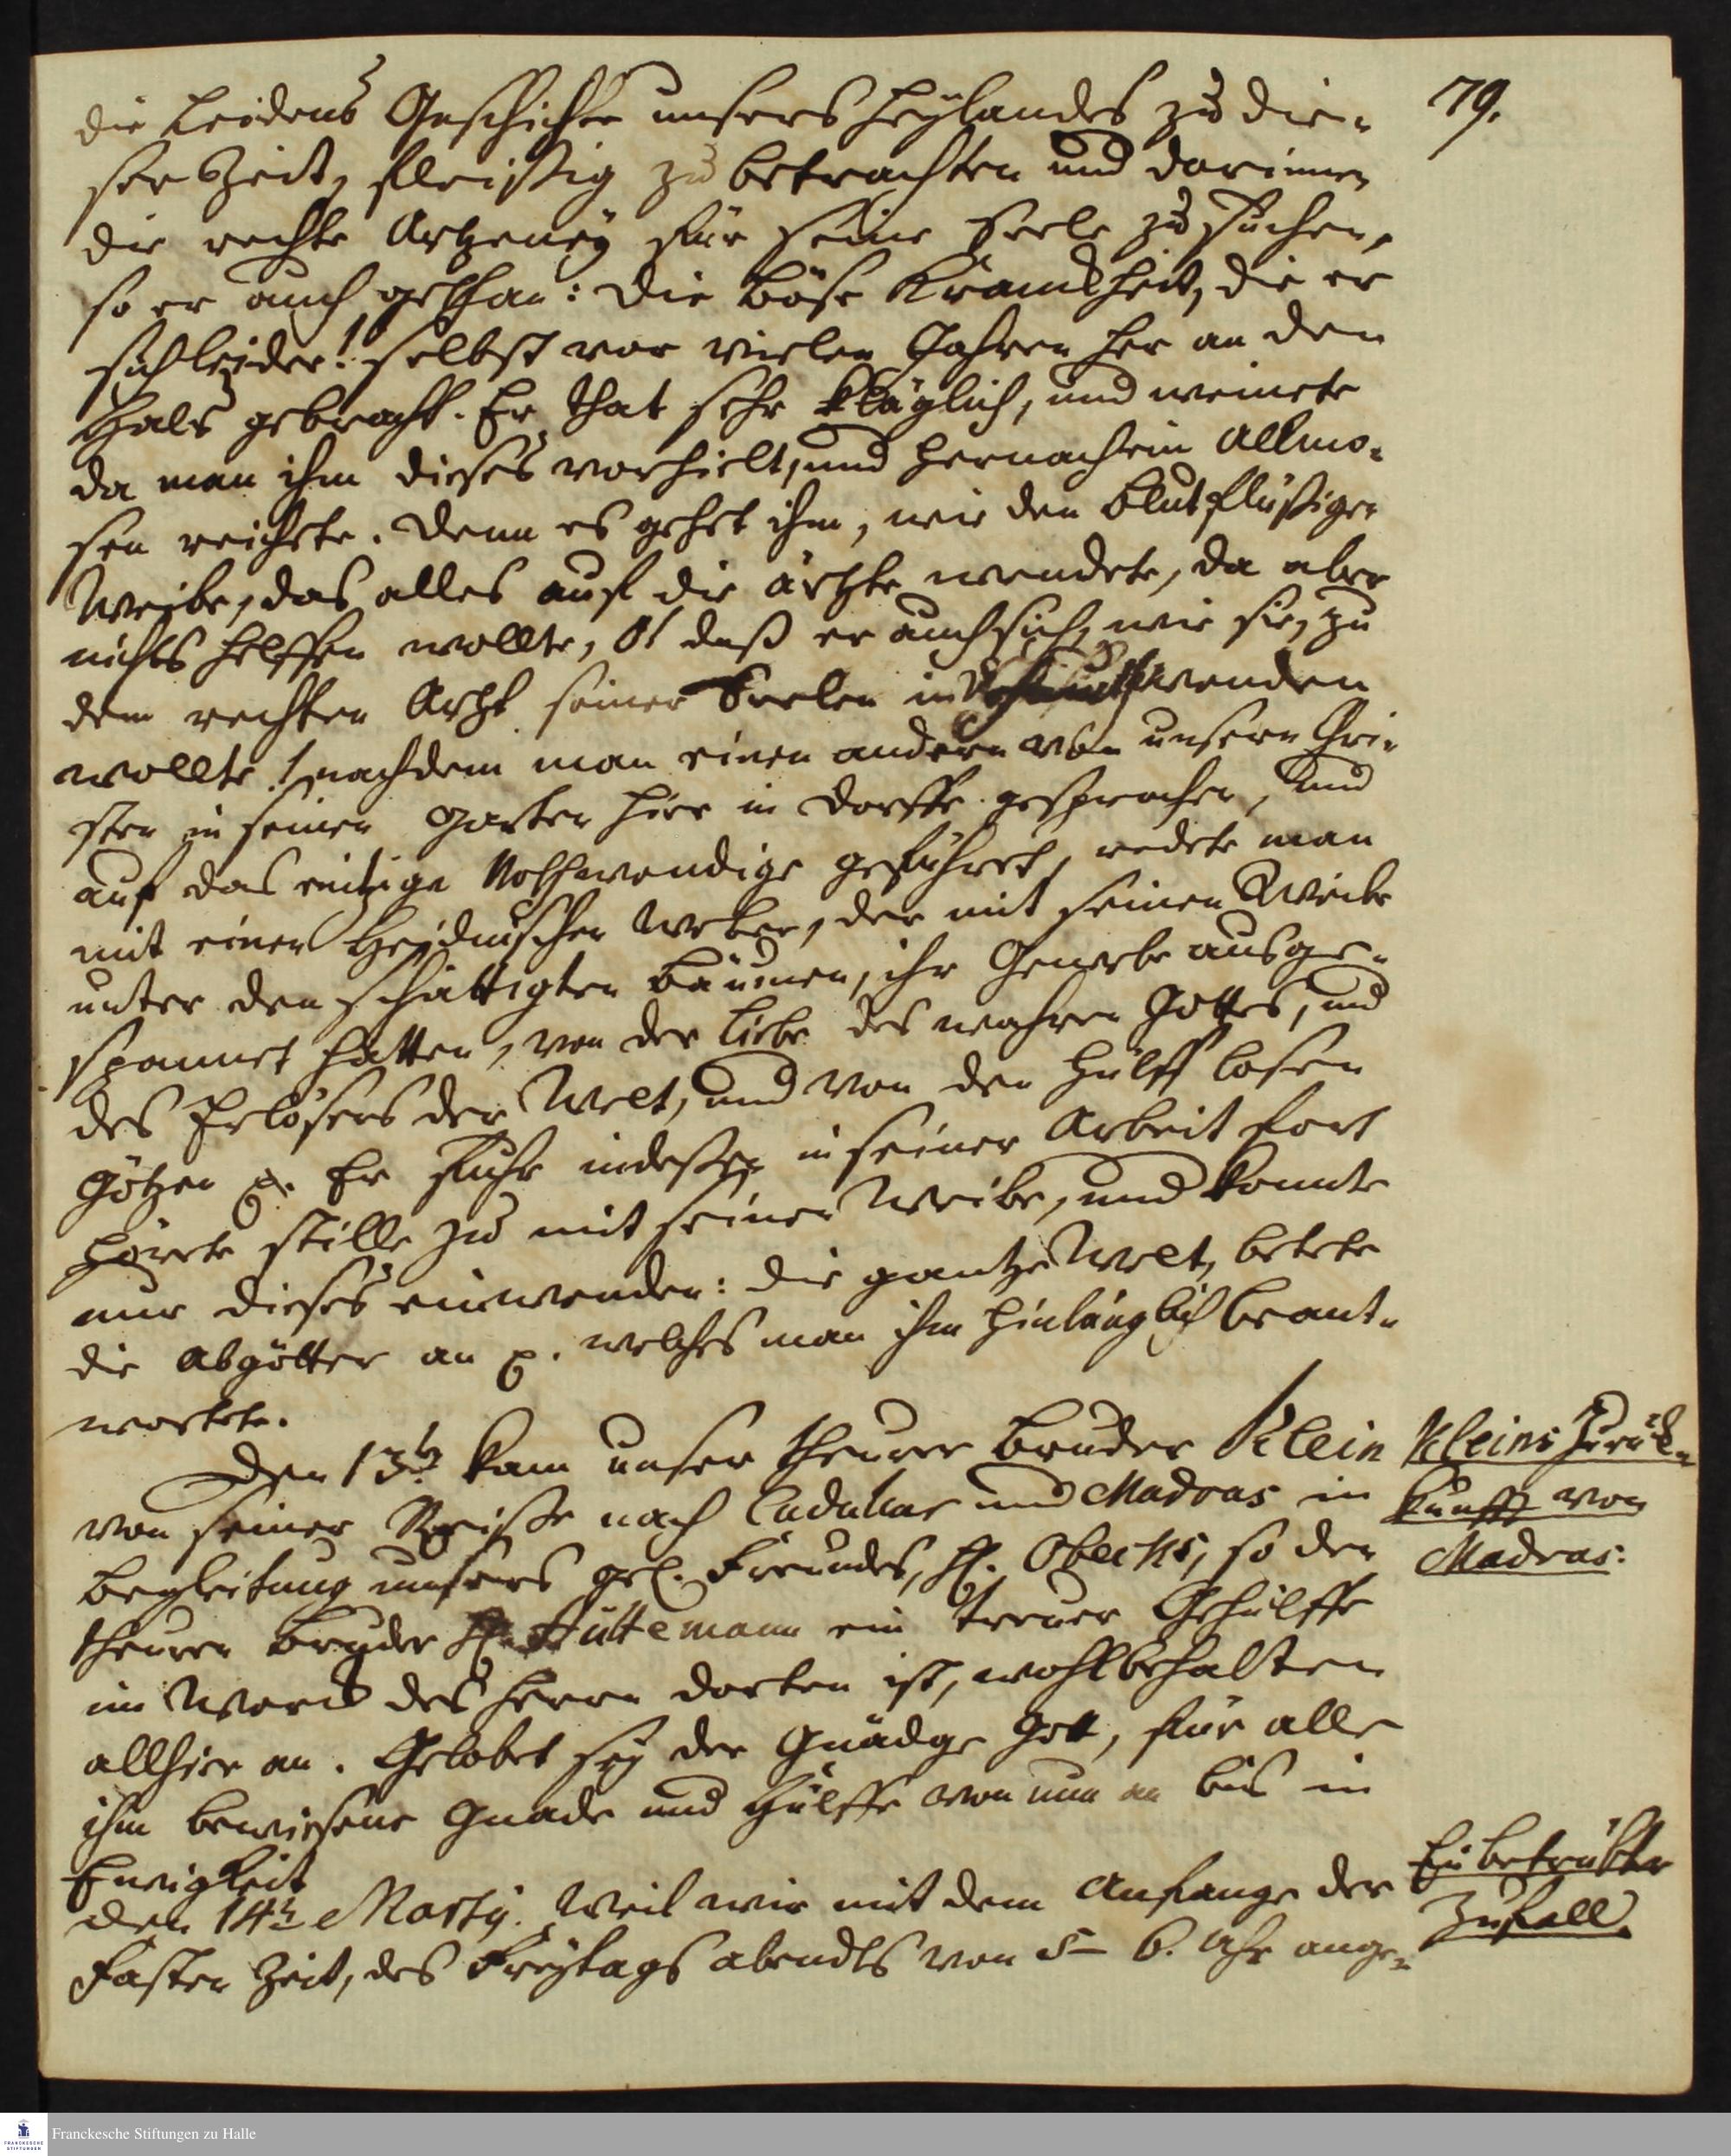 79.
die Leidens Geschichte unsers Heylandes zu die-
ser Zeit, fleißig zu betrachten und darinnen
die rechte Artzeney für seine Seele zu suchen,
so er auch gethan: Die böse Kranckheit, die er
sich leider! selbst vor vielen Jahren her an den
Hals gebracht. Er that sehr kläglich, und weinete
da man ihm dieses vorhielt, und hernach ein Allmo-
sen reichete. Denn es gehet ihm, wie den Blutflüßigen
Weibe, das alles auf die ärtzte wendete, da aber
nichts helffen wollte, O! daß er auch sich, wie sie, zu
dem rechten Artzt seiner Seelen in wenden
wollte! nachdem man einen andern von unsern Chri-
sten in seinen Garten hier in Dorffe gesprochen, und
auf das eintzige Nothwendige geführet, redete man
mit einen Heydnischen Weber, der mit seinen Weibe
unter den schattigten Bäumen, ihr Gewebe ausge-
spannet hatten, von der Liebe des wahren Gottes, und
des Erlösers der Welt, und von den Hülff losen
Götzen p. Er fuhr indeßen in seiner Arbeit fort
hörete stille zu mit seinen Weibe, und konnte
nur dieses einwenden: die gantze Welt, betete
die Abgötter an p. welches man ihm hinlänglich beant-
wortete.
Den 13t. kam unser theurer Bruder Klein
von seiner Reise nach Cudulur und Madras in
Begleitung unsers gel. Freundes, H. Obecks, so der
theuren Bruder H. Hüttemann ein treuer Gehülffe
im Werck des Herrn dorten ist, wohlbehalten
allhier an. Gelobet sey der Gnädge Gott, für alle
ihm bewiesene Gnade und Hülffe von nun an bis in
Ewigkeit
Den 14t. Martij. Weil wir mit dem Anfange der
Fasten Zeit, des Freytags abendts von 5-6. Uhr ange-
Kleins Zurük-
kunfft von
Madras.
Ein betrübter
Zufall.
Franckesche Stiftungen zu Halle